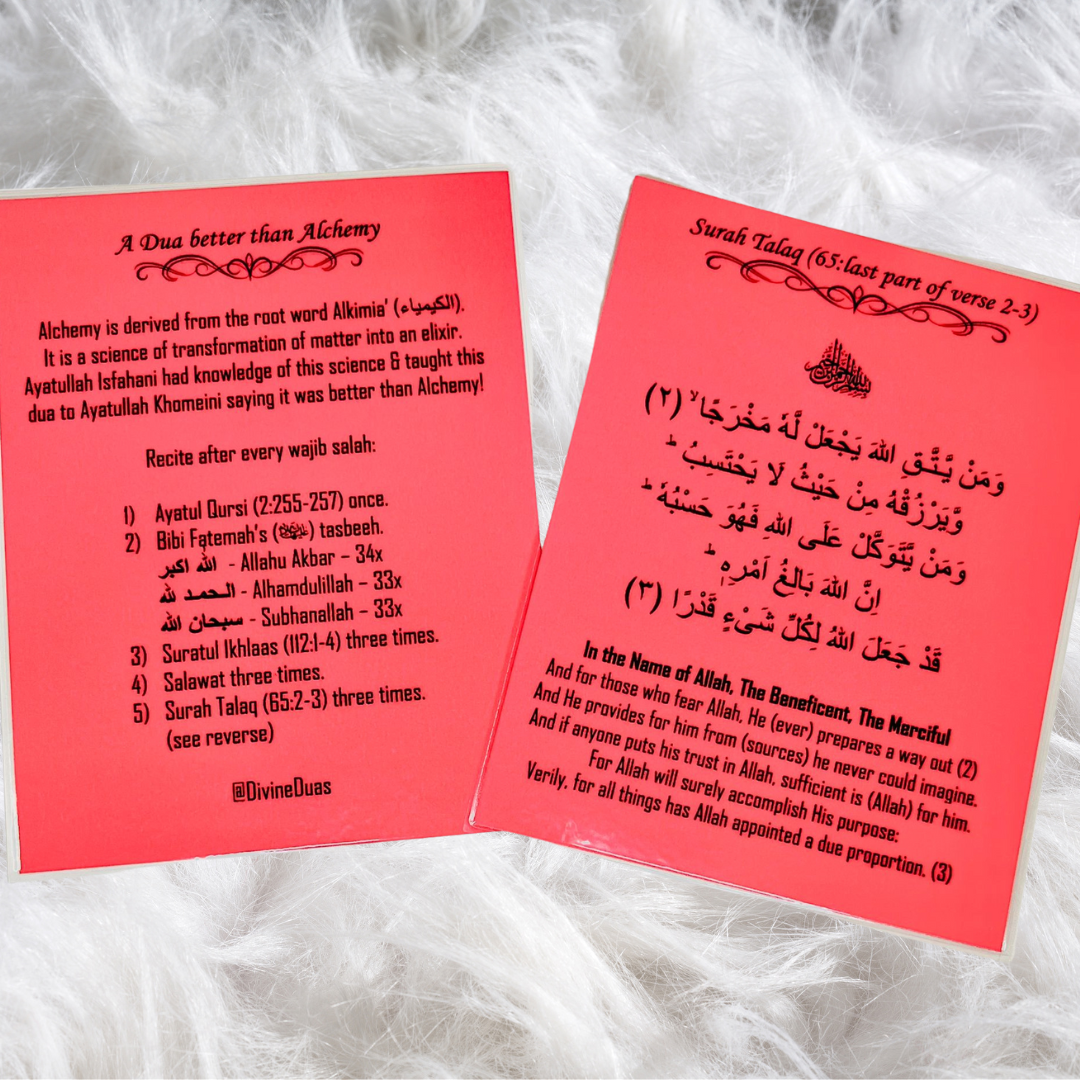 A Dua better than Alchemy
Alchemy is derived from the root word Alkimia' (الكيمياء).
It is a science of transformation of matter into an elixir.
Ayatullah Isfahani had knowledge of this science & taught this
dua to Ayatullah Khomeini saying it was better than Alchemy!
Recite after every wajib salah:
1) Ayatul Qursi (2:255-257) once.
2) Bibi Fatemah's () tasbeeh.
الله اكبر - Allahu Akbar – 34x
الـحمـد لله - Alhamdulillah – 33x
سبحان الله - Subhanallah – 33x
3) Suratul Ikhlaas (112:1-4) three times.
4) Salawat three times.
5) Surah Talaq (65:2-3) three times.
(see reverse)
@DivineDuas
Surah Talaq (65:last part of verse 2-3)
بسم الله الرحمن الرحيم
وَمَنْ يَّتَّقِ اللهَ يَجْعَلْ لَّهٗ مَخْرَجًا ۙ (٢)
وَّيَرْزُقْهُ مِنْ حَيْثُ لَا يَحْتَسِبُ ؕ
وَمَنْ يَّتَوَكَّلْ عَلَى اللهِ فَهُوَ حَسْبُهٗ ؕ
اِنَّ اللهَ بَالِغُ اَمْرِهٖ ؕ
قَدْ جَعَلَ اللهُ لِكُلِّ شَىْءٍ قَدْرًا (٣)
In the Name of Allah, The Beneficent, The Merciful
And for those who fear Allah, He (ever) prepares a way out (2)
And He provides for him from (sources) he never could imagine.
And if anyone puts his trust in Allah, sufficient is (Allah) for him.
For Allah will surely accomplish His purpose:
Verily, for all things has Allah appointed a due proportion. (3)